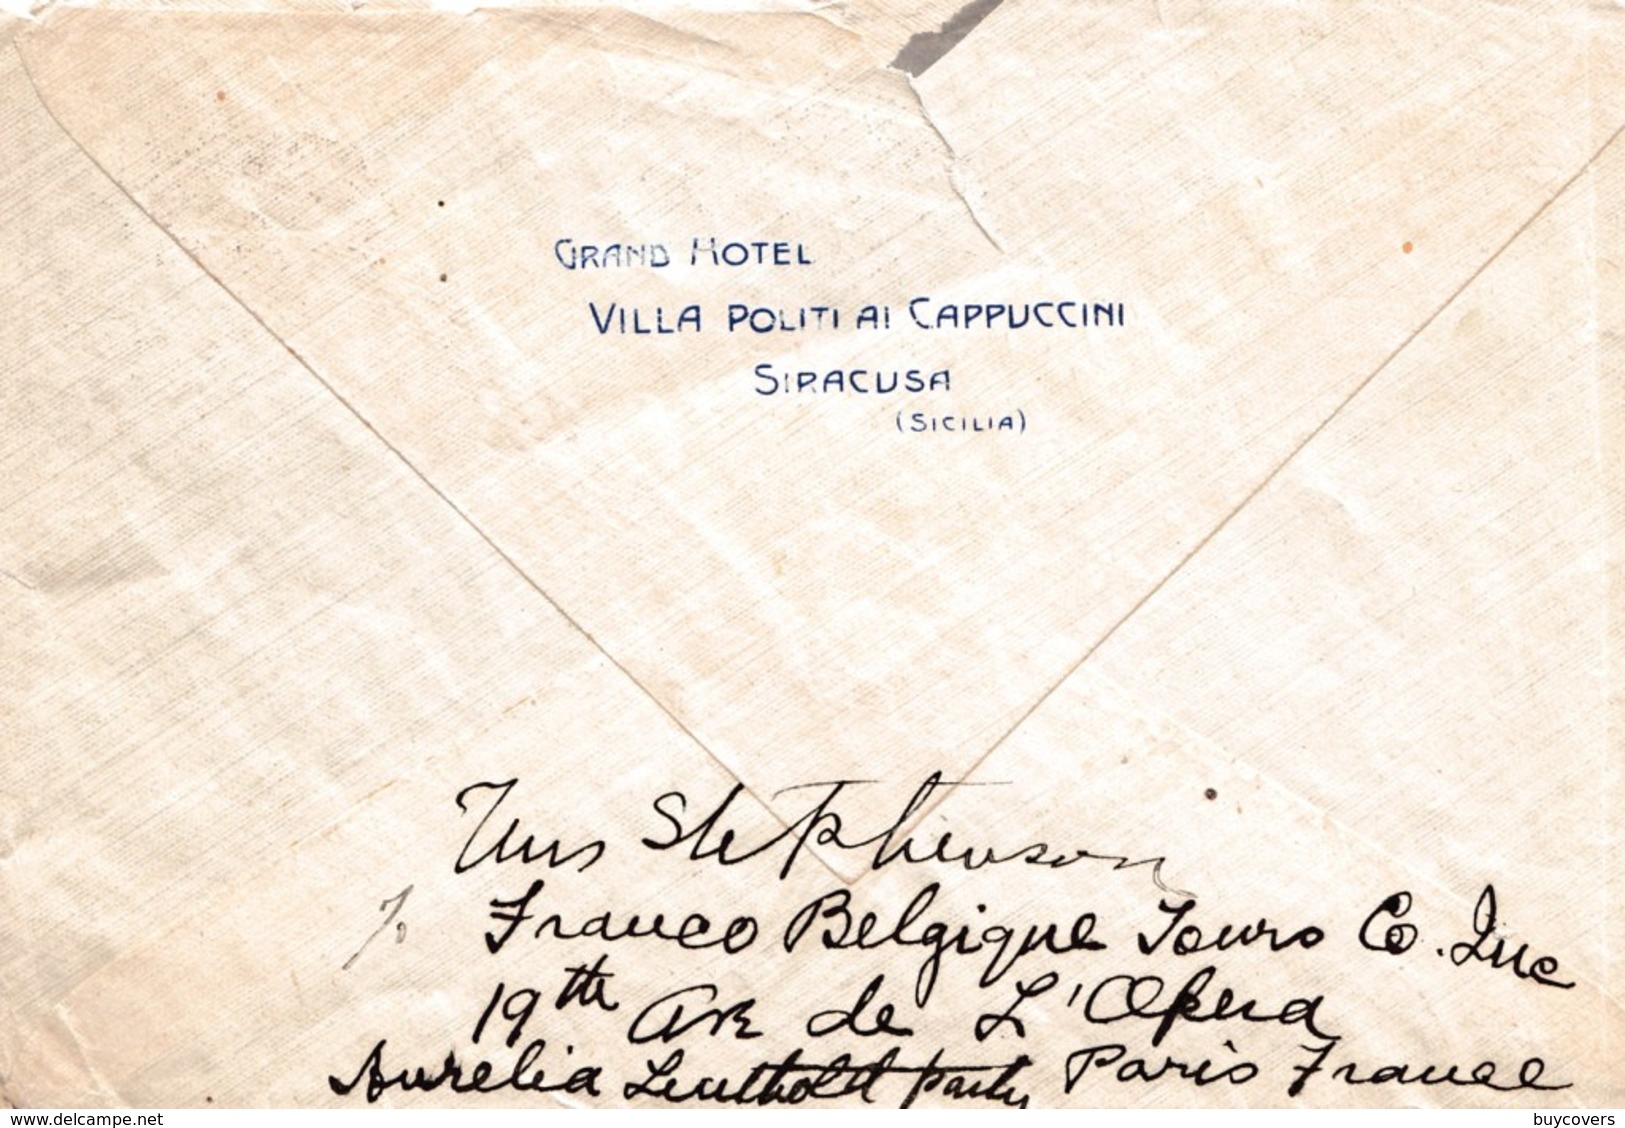 GRAND HOTEL
VILLA POLITI AI CAPPUCCINI
SIRACUSA
(SICILIA)
Stephenson
Franco Belgique Tours Co. Inc
19th Ave de L'Opera
Aurelia Leuthold party Paris France
delcampe.net
buycovers